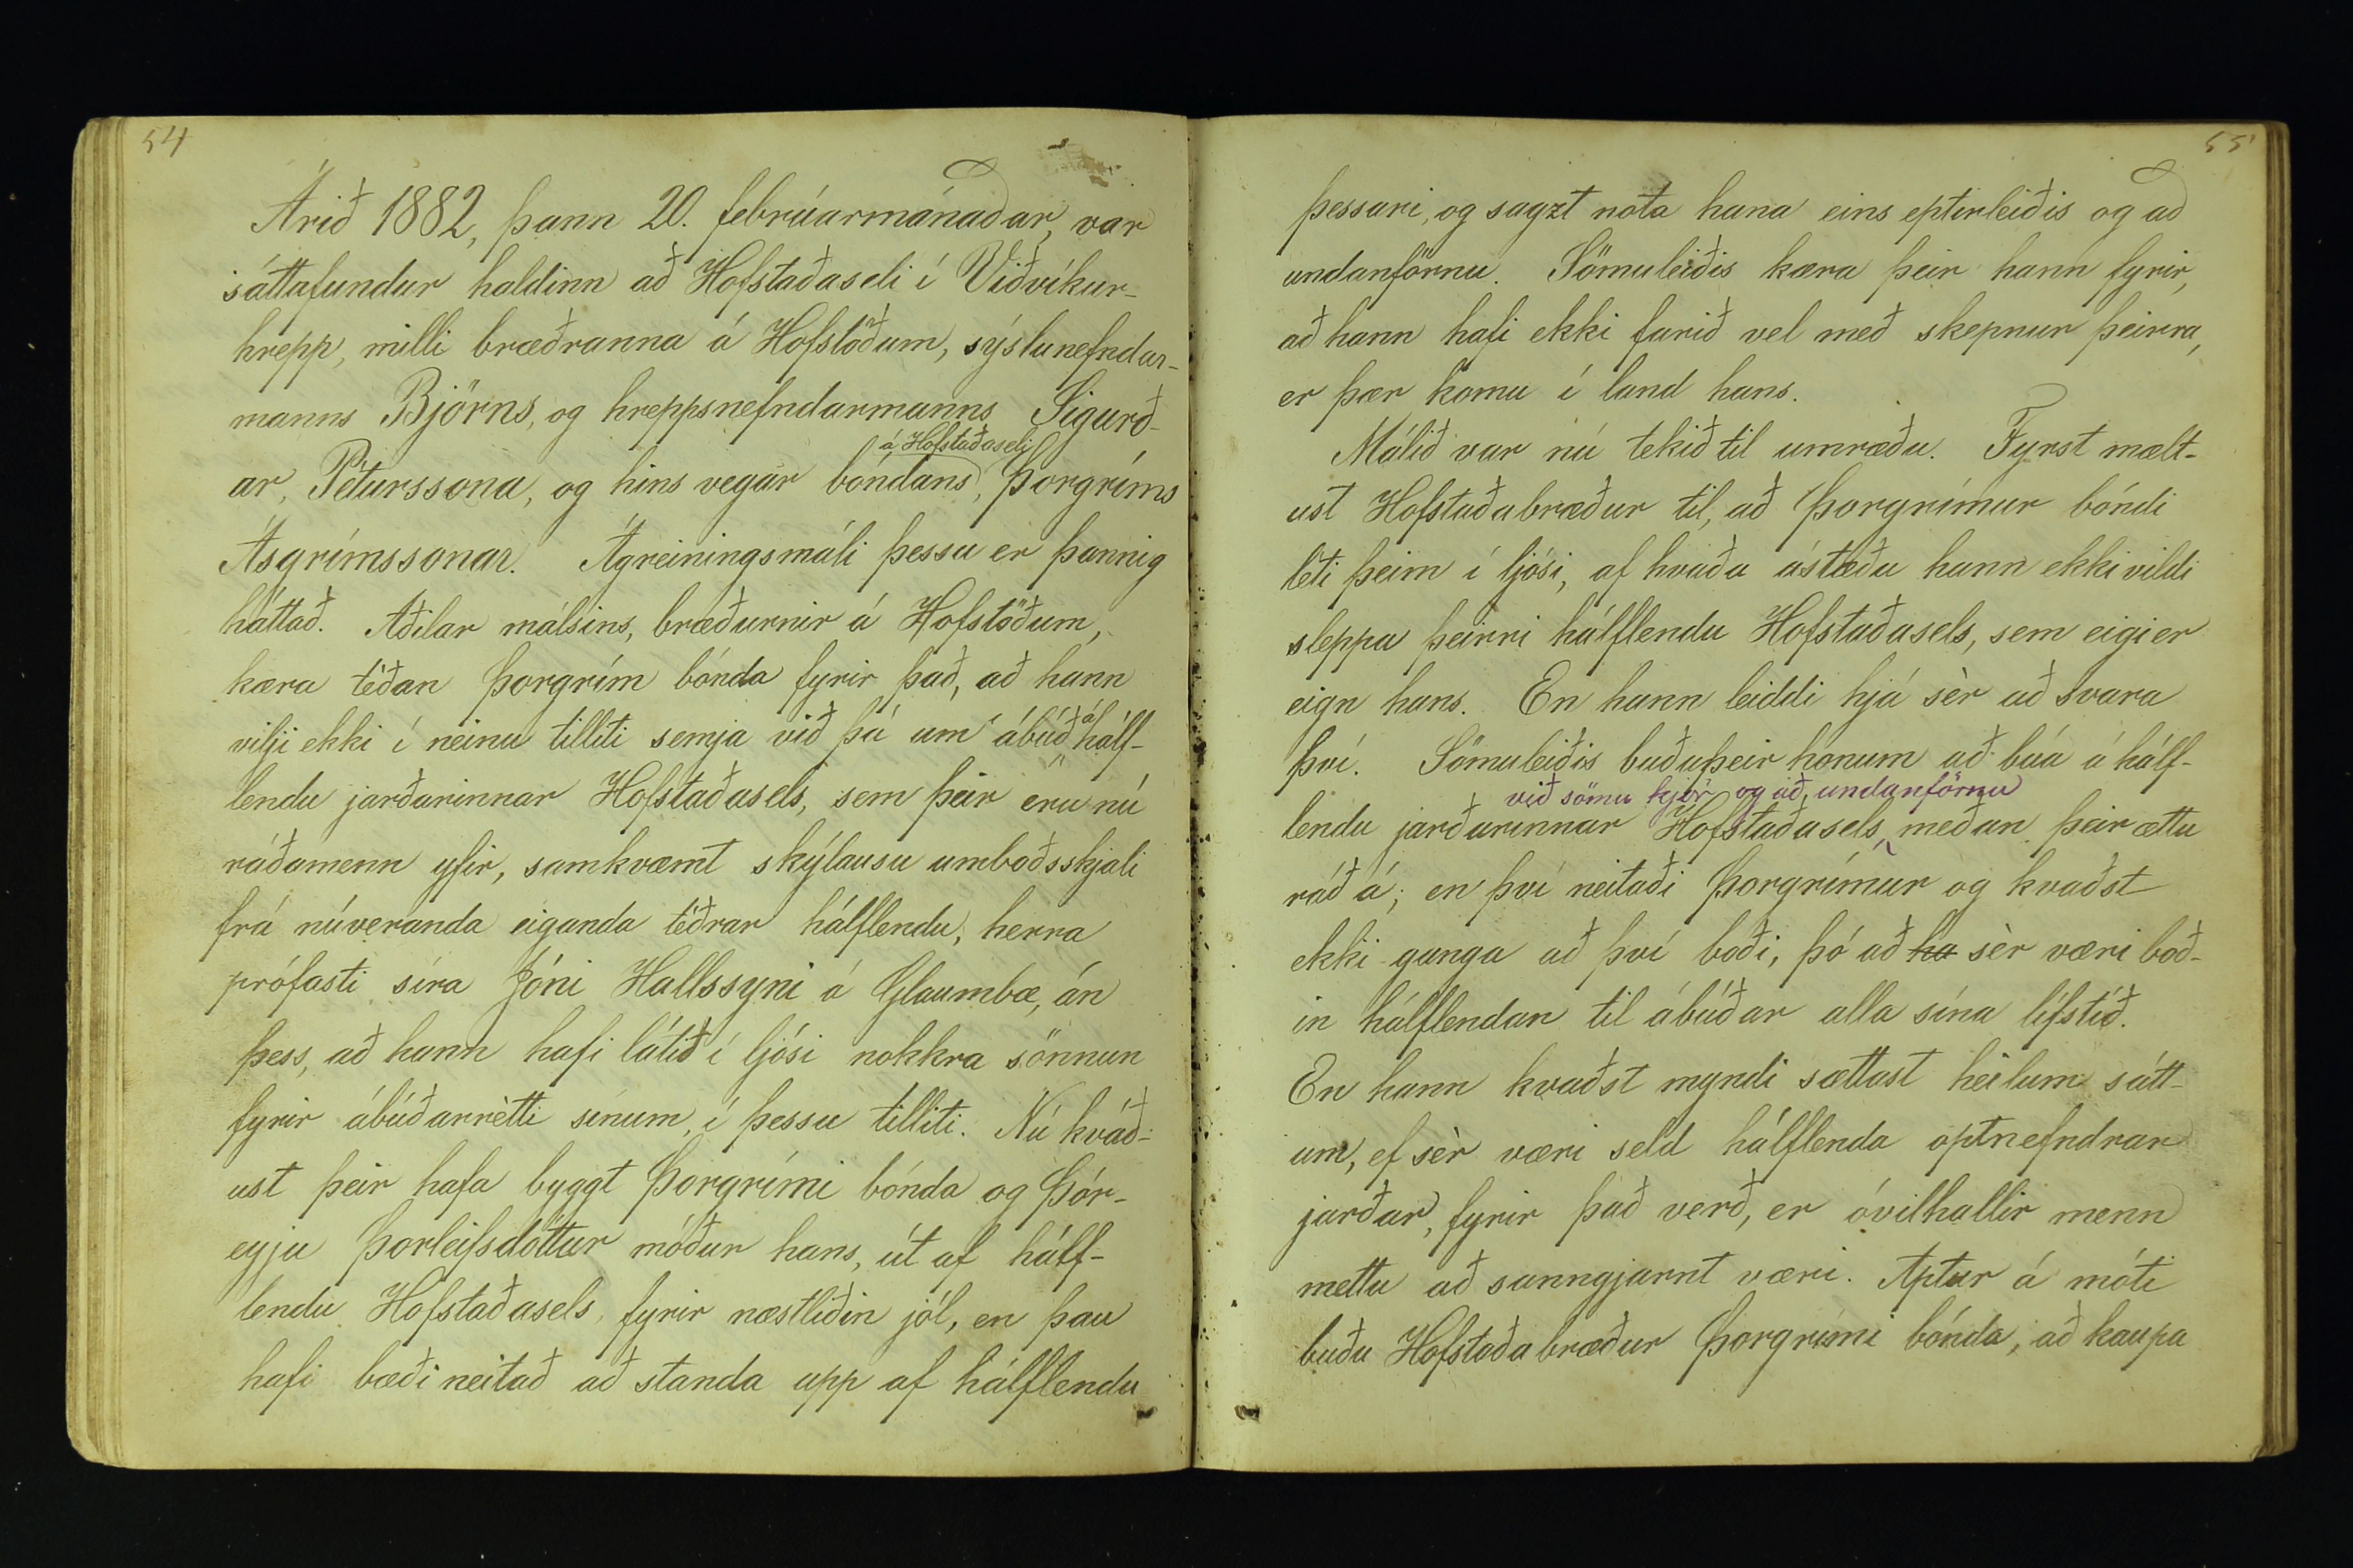 54
Árið 1882, þann 20. febrúarmánaðar, var
sáttafundur haldinn að Hofstaðaseli í Viðvíkur-
hrepp, milli bræðranna á Hofstöðum, sýslunefndar-
manns Björns, og hreppsnefndarmanns Sigurð-
á Hofstaðaseli
ar, Péturssona, og hins vegar bóndans, Þorgríms
Ásgrímssonar. Ágreiningsmáli þessu er þannig
háttað. Aðilar málsins, bræðurnir á Hofstöðum,
kæra téðan Þorgrím bónda fyrir það, að hann
vilji ekki í neinu tilliti semja við þá um ábúð á hálf-
lendu jarðarinnar Hofstaðasels, sem þeir eru nú
ráðamenn yfir, samkvæmt skýlausu umboðsskjali
frá núveranda eiganda téðrar hálflendu, herra
prófasti síra Jóni Hallssyni á Glaumbæ, án
þess, að hann hafi látið í ljósi nokkra sönnun
fyrir ábúðarrètti sínum, í þessu tilliti. Nú kváð-
ust þeir hafa byggt Þorgrími bónda og Þór-
eyju Þorleifsdóttur móður hans, út af hálf-
lendu Hofstaðasels, fyrir næstliðin jól, en þau
hafi bæði neitað að standa upp af hálflendu
55
þessari, og sagzt nota hana eins eptirleiðis og að
undanförnu. Sömuleiðis kæra þeir hann fyrir,
að hann hafi ekki farið vel með skepnur þeirra,
er þær komu í land hans.
Málið var nú tekið til umræðu. Fyrst mælt-
ust Hofstaðabræður til, að Þorgrímur bóndi
lèti þeim í ljósi, af hvaða ástæðu hann ekki vildi
sleppa þeirri hálflendu Hofstaðasels, sem eigi er
eign hans. En hann leiddi hjá sèr að svara
því. Sömuleiðis buðu þeir honum að búa á hálf-
við sömu kjör og að undanförnu
lendu jarðarinnar Hofstaðasels, meðan þeir ættu
ráð á; en því neitaði Þorgrímur og kvaðst
ekki ganga að því boði, þó að ha sèr væri boð-
in hálflendan til ábúðar alla sína lífstíð.
En hann kvaðst myndi sættast heilum sátt-
um, ef sèr væri seld hálflenda optnefndrar
jarðar, fyrir það verð, er óvilhallir menn
mettu að sanngjarnt væri. Aptur á móti
buðu Hofstaðabræður Þorgrími bónda, að kaupa